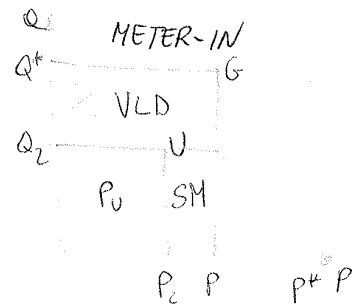 Q
METER-IN
Q* G
VLD
Q₂ U
Pᵤ SM
P꜀ P P* P